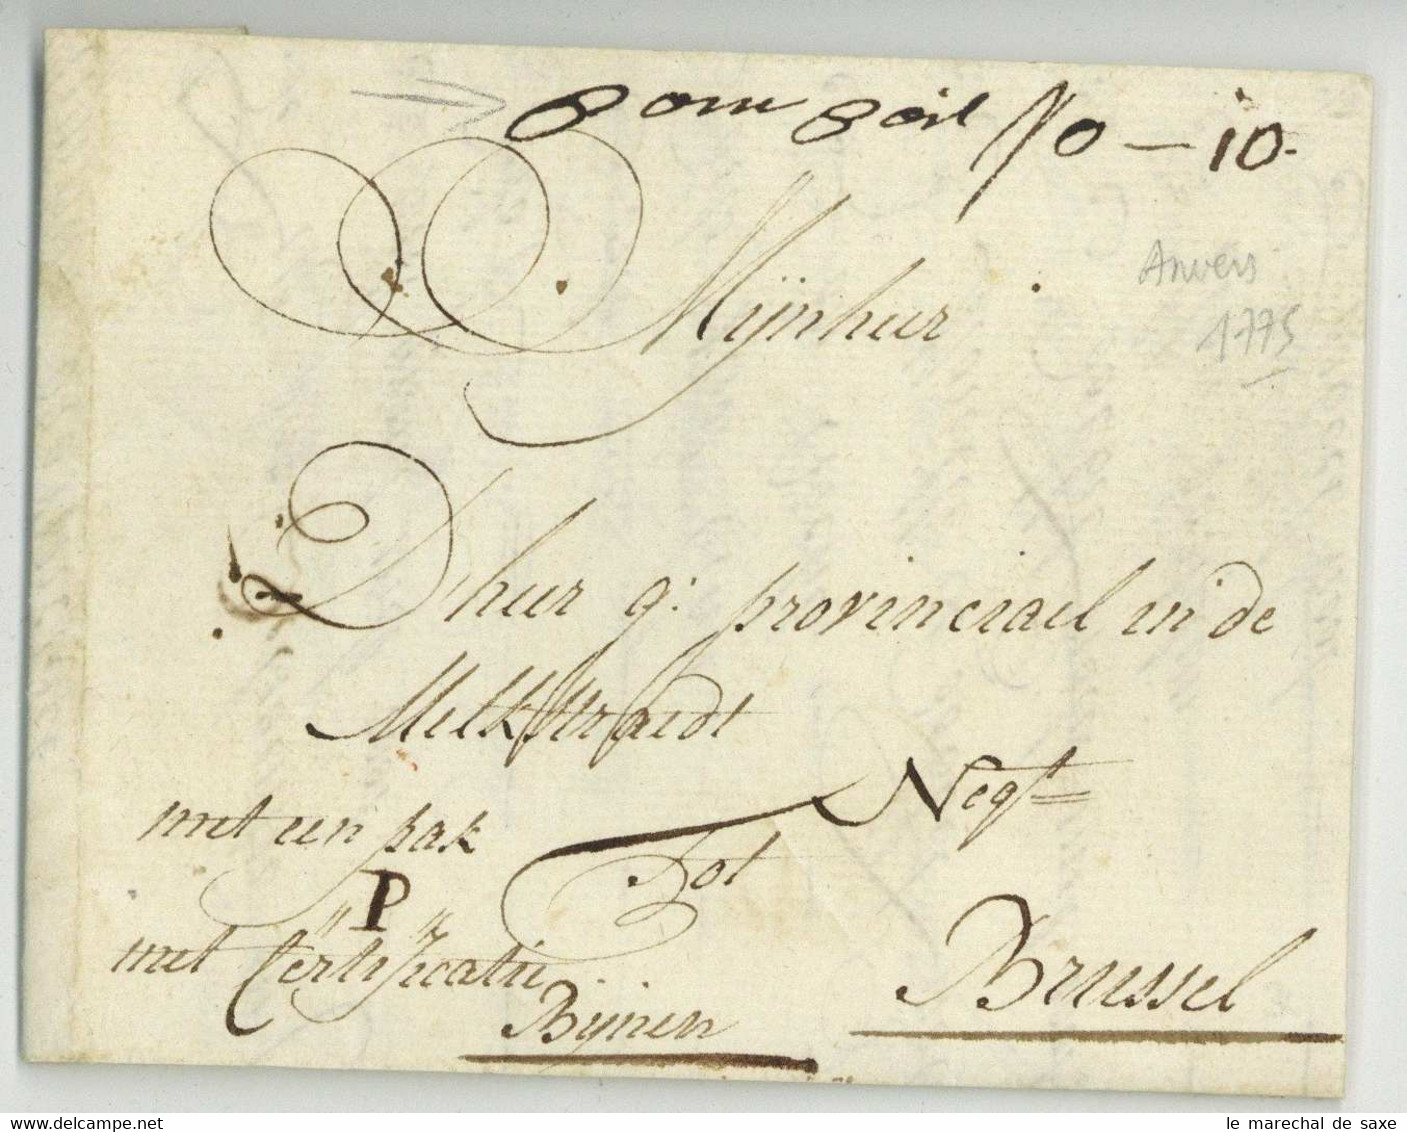 No - 10.
Mijnheer
Anvers
1775
D'heer g: provinciael in de
Melkstraedt
Negt
met een pak
Tot
P
met Certificatie
Brussel
Bijnen
www.delcampe.net
le marechal de saxe